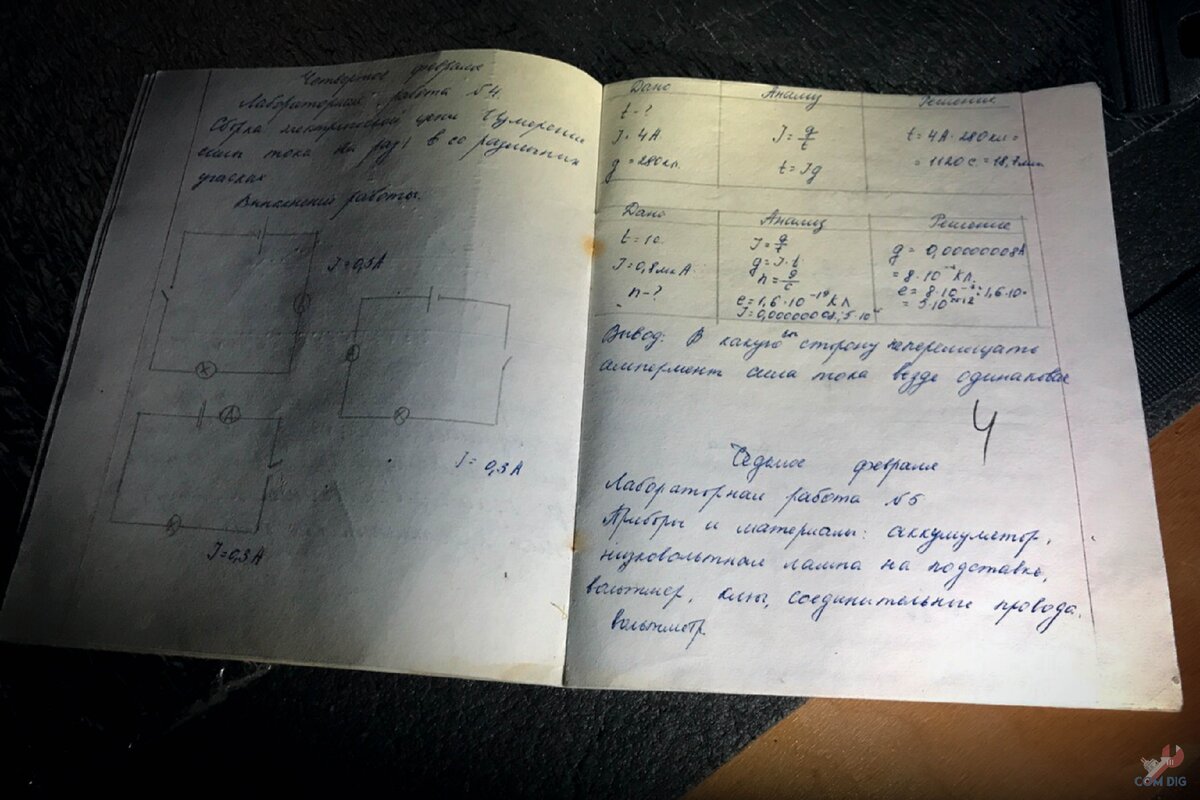 Четвертое февраля
Лабораторная работа №4.
Сборка электрической цепи Измерение
силы тока на различных
участках
Выполнение работы.
J = 0,3А
J = 0,3 А
J = 0,3 А
A
Дано Анализ Решение
t - ?
J = 4А
g = 280кл.
J = g/t
t = Jg
t = 4А · 280кл =
= 1120с = 18,7мин
Дано Анализ Решение
t = 1с.
J = 0,8мкА
n - ?
J = g/t
g = J · t
n = g/e
e = 1,6 · 10⁻¹⁹ Кл
g = 0,00000008А
= 8 · 10 Кл.
Вывод: В какую бы сторону не перемещать
амперметр сила тока везде одинаковая
4
Седьмое февраля
Лабораторная работа №5
Приборы и материалы: аккумулятор,
низковольтная лампа на подставке,
вольтмер, ключ, соединительные провода.
вольтметр.
COM DIG